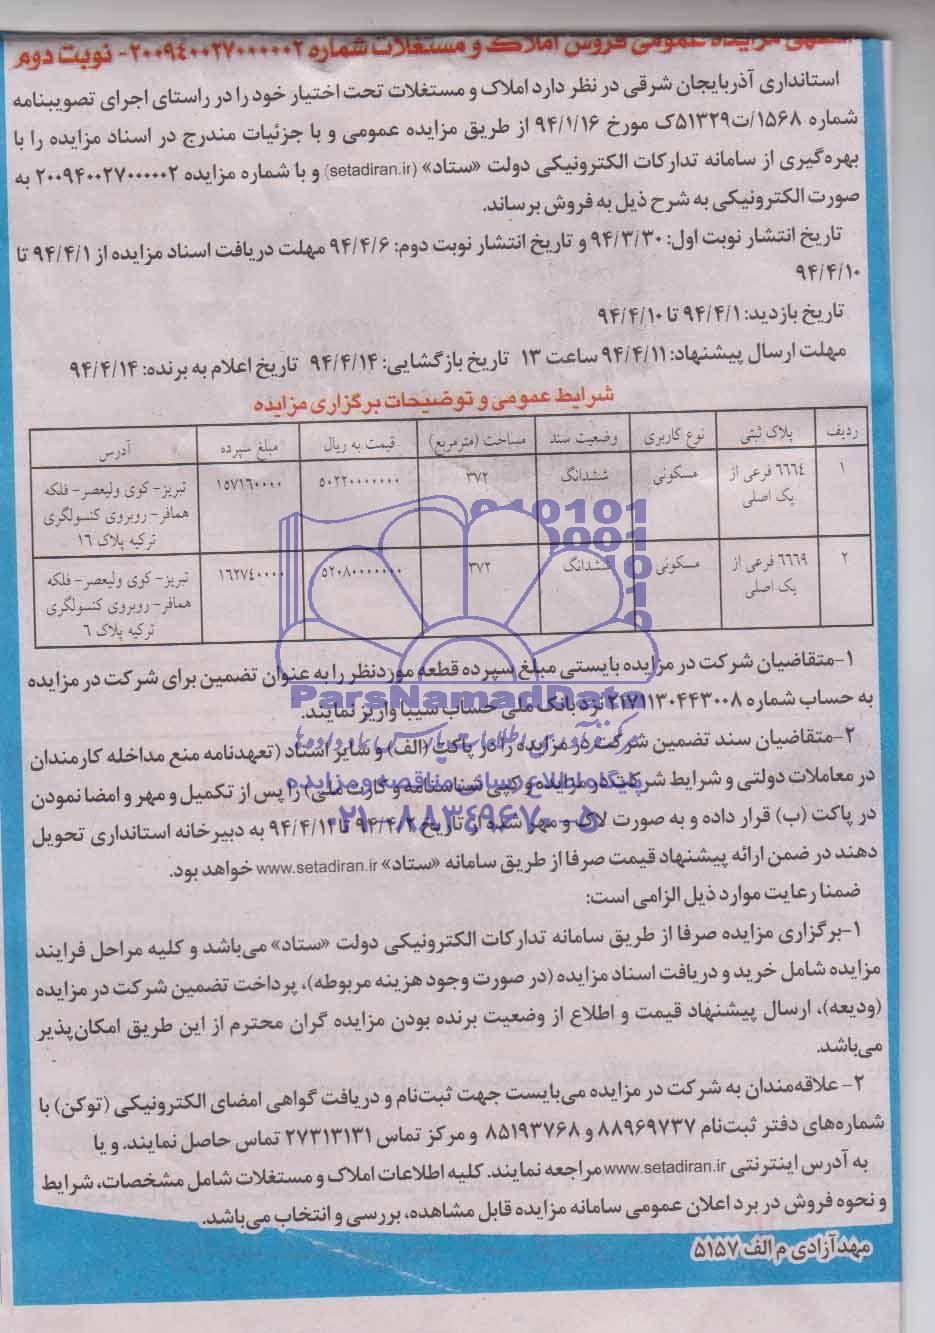 آگهی مزایده عمومی فروش املاک و مستغلات شماره ۲۰۰۹۴۰۰۲۷۰۰۰۰۰۲- نوبت دوم
استانداری آذربایجان شرقی در نظر دارد املاک و مستغلات تحت اختیار خود را در راستای اجرای تصویبنامه
شماره ۱۵۶۸/ت۵۱۳۲۹ک مورخ ۹۴/۱/۱۶ از طریق مزایده عمومی و با جزئیات مندرج در اسناد مزایده را با
بهره‌گیری از سامانه تدارکات الکترونیکی دولت «ستاد» (setadiran.ir) و با شماره مزایده ۲۰۰۹۴۰۰۲۷۰۰۰۰۰۲ به
صورت الکترونیکی به شرح ذیل به فروش برساند.
تاریخ انتشار نوبت اول: ۹۴/۳/۳۰ و تاریخ انتشار نوبت دوم: ۹۴/۴/۶ مهلت دریافت اسناد مزایده از ۹۴/۴/۱ تا
۹۴/۴/۱۰
تاریخ بازدید: ۹۴/۴/۱ تا ۹۴/۴/۱۰
مهلت ارسال پیشنهاد: ۹۴/۴/۱۱ ساعت ۱۳ تاریخ بازگشایی: ۹۴/۴/۱۴ تاریخ اعلام به برنده: ۹۴/۴/۱۴
شرایط عمومی و توضیحات برگزاری مزایده
ردیف پلاک ثبتی نوع کاربری وضعیت سند مساحت (مترمربع) قیمت به ریال مبلغ سپرده آدرس
۱ ۶۶۶۴ فرعی از مسکونی ششدانگ ۳۷۲ ۵۰۲۲۰۰۰۰۰۰۰ ۱۵۷۱۶۰۰۰۰ تبریز- کوی ولیعصر- فلکه
یک اصلی همافر- روبروی کنسولگری
ترکیه پلاک ۱۶
۲ ۶۶۶۹ فرعی از مسکونی ششدانگ ۳۷۲ ۵۲۰۸۰۰۰۰۰۰۰ ۱۶۲۷۴۰۰۰۰ تبریز- کوی ولیعصر- فلکه
یک اصلی همافر- روبروی کنسولگری
ترکیه پلاک ۶
۱-متقاضیان شرکت در مزایده بایستی مبلغ سپرده قطعه موردنظر را به عنوان تضمین برای شرکت در مزایده
به حساب شماره ۲۱۷۱۱۳۰۴۴۳۰۰۸ نزد بانک ملی حساب سیبا واریز نمایند.
۲-متقاضیان سند تضمین شرکت در مزایده را در پاکت (الف) و سایر اسناد (تعهدنامه منع مداخله کارمندان
در معاملات دولتی و شرایط شرکت در مزایده و کپی شناسنامه و کارت ملی) را پس از تکمیل و مهر و امضا نمودن
در پاکت (ب) قرار داده و به صورت لاک و مهر شده از تاریخ ۹۴/۴/۲ تا ۹۴/۴/۱۲ به دبیرخانه استانداری تحویل
دهند در ضمن ارائه پیشنهاد قیمت صرفا از طریق سامانه «ستاد» www.setadiran.ir خواهد بود.
ضمنا رعایت موارد ذیل الزامی است:
۱-برگزاری مزایده صرفا از طریق سامانه تدارکات الکترونیکی دولت «ستاد» می‌باشد و کلیه مراحل فرایند
مزایده شامل خرید و دریافت اسناد مزایده (در صورت وجود هزینه مربوطه)، پرداخت تضمین شرکت در مزایده
(ودیعه)، ارسال پیشنهاد قیمت و اطلاع از وضعیت برنده بودن مزایده گران محترم از این طریق امکان‌پذیر
می‌باشد.
۲- علاقه‌مندان به شرکت در مزایده می‌بایست جهت ثبت‌نام و دریافت گواهی امضای الکترونیکی (توکن) با
شماره‌های دفتر ثبت‌نام ۸۸۹۶۹۷۳۷ و ۸۵۱۹۳۷۶۸ و مرکز تماس ۲۷۳۱۳۱۳۱ تماس حاصل نمایند. و یا
به آدرس اینترنتی www.setadiran.ir مراجعه نمایند. کلیه اطلاعات املاک و مستغلات شامل مشخصات، شرایط
و نحوه فروش در برد اعلان عمومی سامانه مزایده قابل مشاهده، بررسی و انتخاب می‌باشد.
مهد آزادی م الف ۵۱۵۷
ParsNamadData
پایگاه اطلاع رسانی مناقصه و مزایده
۰۲۱-۸۸۳۴۹۶۷۰-۵